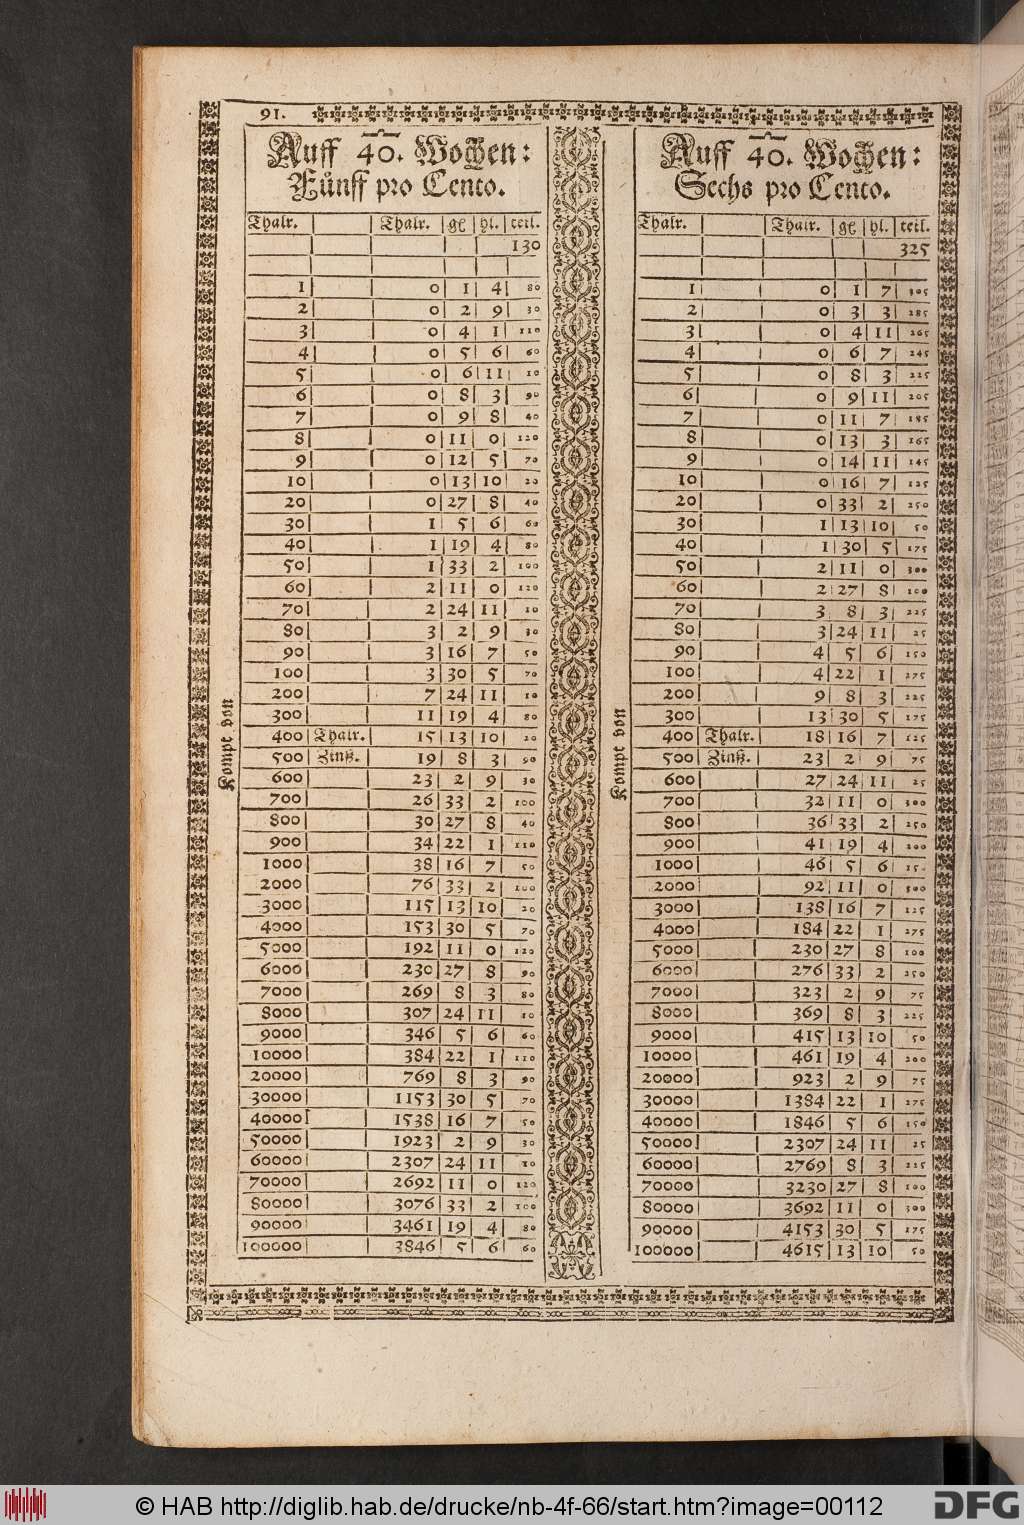 91.
Auff 40. Wochen:
Fůnff pro Cento.
Thalr. Thalr. gl hl. teil.
130
1 0 1 4 80
2 0 2 9 30
3 0 4 1 110
4 0 5 6 60
5 0 6 11 10
6 0 8 3 90
7 0 9 8 40
8 0 11 0 120
9 0 12 5 70
10 0 13 10 20
20 0 27 8 40
30 1 5 6 60
40 1 19 4 80
50 1 33 2 100
60 2 11 0 120
70 2 24 11 10
80 3 2 9 30
90 3 16 7 50
100 3 30 5 70
200 7 24 11 10
300 11 19 4 80
400 Thalr. 15 13 10 20
500 Zinß. 19 8 3 90
600 23 2 9 30
700 26 33 2 100
800 30 27 8 40
900 34 22 1 110
1000 38 16 7 50
2000 76 33 2 100
3000 115 13 10 20
4000 153 30 5 70
5000 192 11 0 120
6000 230 27 8 90
7000 269 8 3 80
8000 307 24 11 10
9000 346 5 6 60
10000 384 22 1 110
20000 769 8 3 90
30000 1153 30 5 70
40000 1538 16 7 50
50000 1923 2 9 30
60000 2307 24 11 10
70000 2692 11 0 120
80000 3076 33 2 100
90000 3461 19 4 80
100000 3846 5 6 60
Kompt von
Auff 40. Wochen:
Sechs pro Cento.
Thalr. Thalr. gl hl. teil.
325
1 0 1 7 305
2 0 3 3 285
3 0 4 11 265
4 0 6 7 245
5 0 8 3 225
6 0 9 11 205
7 0 11 7 185
8 0 13 3 165
9 0 14 11 145
10 0 16 7 125
20 0 33 2 250
30 1 13 10 50
40 1 30 5 175
50 2 11 0 300
60 2 27 8 100
70 3 8 3 225
80 3 24 11 25
90 4 5 6 150
100 4 22 1 275
200 9 8 3 225
300 13 30 5 175
400 Thalr. 18 16 7 125
500 Zinß. 23 2 9 75
600 27 24 11 25
700 32 11 0 300
800 36 33 2 250
900 41 19 4 200
1000 46 5 6 150
2000 92 11 0 300
3000 138 16 7 125
4000 184 22 1 275
5000 230 27 8 100
6000 276 33 2 250
7000 323 2 9 75
8000 369 8 3 225
9000 415 13 10 50
10000 461 19 4 200
20000 923 2 9 75
30000 1384 22 1 275
40000 1846 5 6 150
50000 2307 24 11 25
60000 2769 8 3 225
70000 3230 27 8 100
80000 3692 11 0 300
90000 4153 30 5 175
100000 4615 13 10 50
Kompt von
© HAB http://diglib.hab.de/drucke/nb-4f-66/start.htm?image=00112
DFG